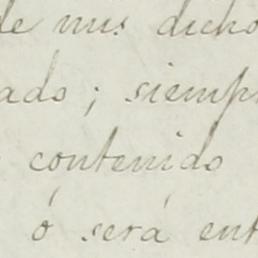 de mis dicho
ado; siemp
contenido
ó será ent